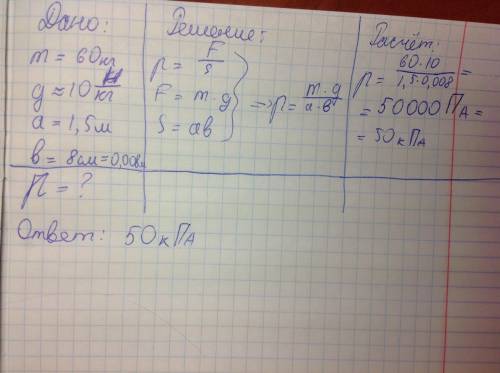 Дано:
m = 60кг
g ≈ 10 Н/кг
a = 1,5м
b = 8см = 0,008м
p = ?
Решение:
p = F/S
F = m·g
S = ab
=> p = m·g/a·b
Расчёт:
p = 60·10/1,5·0,008 =
= 50000 ПА =
= 50кПА
Ответ: 50кПА